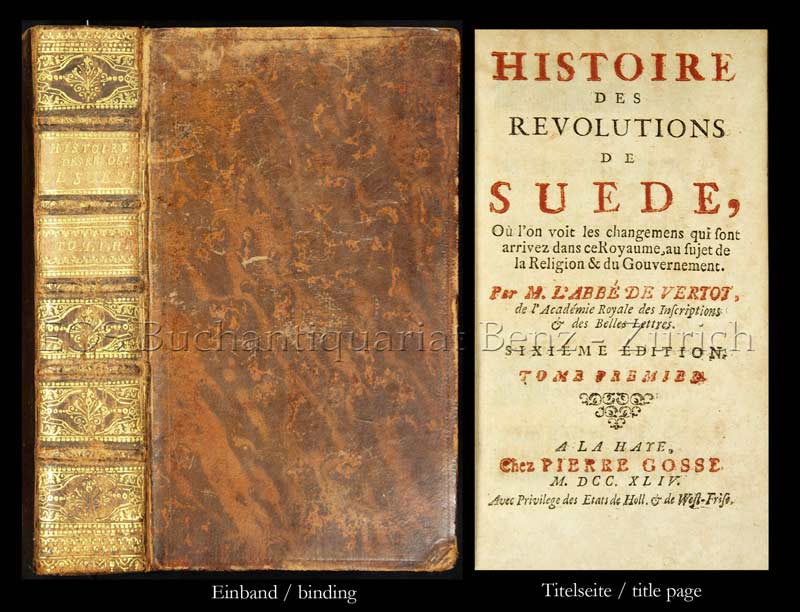 HISTOIRE
DES REVOL.
DE SUEDE
TO. I. II.
HISTOIRE
DES
REVOLUTIONS
DE
SUEDE,
Où l'on voit les changemens qui sont
arrivez dans ce Royaume, au sujet de
la Religion & du Gouvernement.
Par M. L'ABBÉ DE VERTOT,
de l'Académie Royale des Inscriptions
& des Belles Lettres.
Buchantiquariat Benz - Zürich
SIXIEME EDITION.
TOME PREMIER.
A LA HAYE,
Chez PIERRE GOSSE.
M. DCC. XLIV.
Avec Privilege des Etats de Holl. & de West-Frise.
Einband / binding
Titelseite / title page